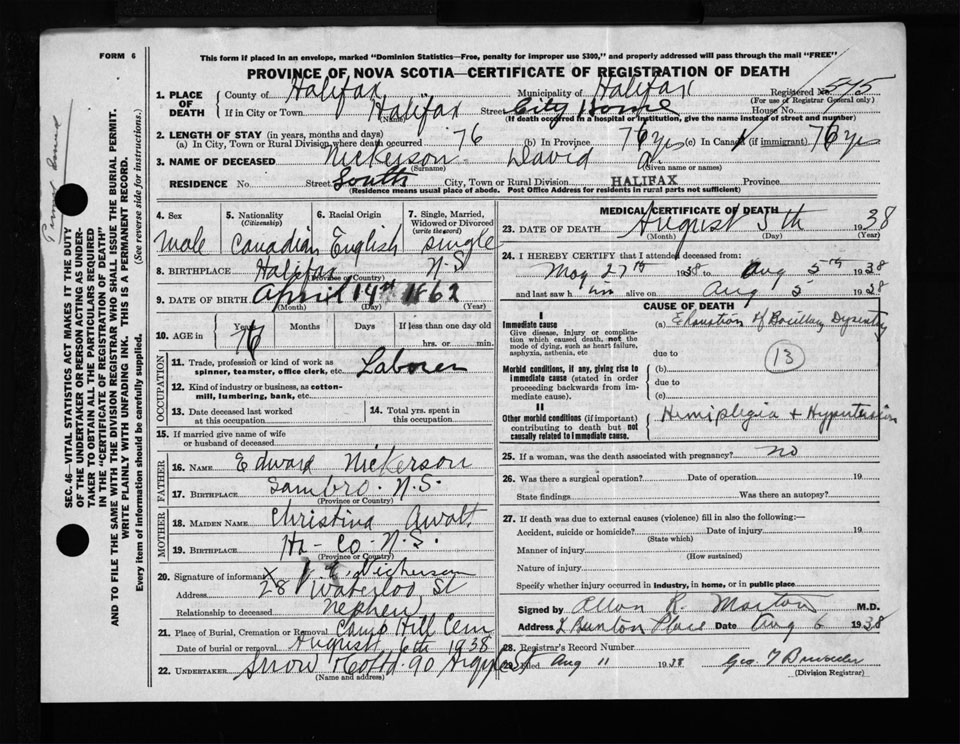 FORM 6
This form if placed in an envelope, marked "Dominion Statistics—Free, penalty for improper use $300," and properly addressed will pass through the mail "FREE"
PROVINCE OF NOVA SCOTIA—CERTIFICATE OF REGISTRATION OF DEATH
SEC. 46—VITAL STATISTICS ACT MAKES IT THE DUTY
OF THE UNDERTAKER OR PERSON ACTING AS UNDER-
TAKER TO OBTAIN ALL THE PARTICULARS REQUIRED
IN THE "CERTIFICATE OF REGISTRATION OF DEATH"
AND TO FILE THE SAME WITH THE DIVISION REGISTRAR WHO SHALL ISSUE THE BURIAL PERMIT.
WRITE PLAINLY WITH UNFADING INK. THIS IS A PERMANENT RECORD.
Every item of information should be carefully supplied. (See reverse side for instructions.)
1. PLACE OF DEATH
County of Halifax Municipality of Halifax Registered No. 595
(For use of Registrar General only)
If in City or Town Halifax Street City Home House No.
(Name) (If death occurred in a hospital or institution, give the name instead of street and number)
2. LENGTH OF STAY (in years, months and days)
(a) In City, Town or Rural Division where death occurred 76 (b) In Province 76 yrs (c) In Canada (if immigrant) 76 yrs
3. NAME OF DECEASED Nickerson David A.
(Surname) (Given name or names)
RESIDENCE No. Street South City, Town or Rural Division HALIFAX Province
(Residence means usual place of abode. Post Office Address for residents in rural parts not sufficient)
4. Sex
male
5. Nationality
(Citizenship)
Canadian
6. Racial Origin
English
7. Single, Married, Widowed or Divorced
(write the word)
single
8. BIRTHPLACE Halifax N.S
(Province or Country)
9. DATE OF BIRTH April 14st 1862
(Month) (Day) (Year)
10. AGE in Years Months Days If less than one day old
76 hrs. or min.
OCCUPATION
11. Trade, profession or kind of work as spinner, teamster, office clerk, etc. Laborer
12. Kind of industry or business, as cotton-mill, lumbering, bank, etc.
13. Date deceased last worked at this occupation
14. Total yrs. spent in this occupation
15. If married give name of wife or husband of deceased
FATHER
16. NAME Edward Nickerson
17. BIRTHPLACE Sambro. N.S.
(Province or Country)
MOTHER
18. MAIDEN NAME Christina
19. BIRTHPLACE Ha-Co-N.S.
(Province or Country)
20. Signature of informant X E Nickerson
Address 28 Waterloo St
Relationship to deceased nephew
21. Place of Burial, Cremation or Removal Camp Hill Cem
Date of burial or removal August 6th 1938
22. UNDERTAKER Snow & Co Ltd. 90 Argyle St
(Name and address)
MEDICAL CERTIFICATE OF DEATH
23. DATE OF DEATH August 5th 1938
(Month) (Day) (Year)
24. I HEREBY CERTIFY that I attended deceased from:
May 27th 1938 to Aug 5th 1938
and last saw him alive on Aug 5 1938
CAUSE OF DEATH
I
Immediate cause
Give disease, injury or complication which caused death, not the mode of dying, such as heart failure, asphyxia, asthenia, etc
(a) Exhaustion of Bacillary Dysentry
due to
Morbid conditions, if any, giving rise to immediate cause (stated in order proceeding backwards from immediate cause).
(b) 13
due to
(c)
II
Other morbid conditions (if important) contributing to death but not causally related to immediate cause.
Hemiplegia + Hypertension
25. If a woman, was the death associated with pregnancy? no
26. Was there a surgical operation? Date of operation 19
State findings Was there an autopsy?
27. If death was due to external causes (violence) fill in also the following:—
Accident, suicide or homicide? Date of injury 19
(State which)
Manner of injury
(How sustained)
Nature of injury
Specify whether injury occurred in industry, in home, or in public place
Signed by Allan R. Morton M.D.
Address Place Date Aug 6 1938
28. Registrar's Record Number
29. Filed Aug 11 1938 Geo.
(Division Registrar)